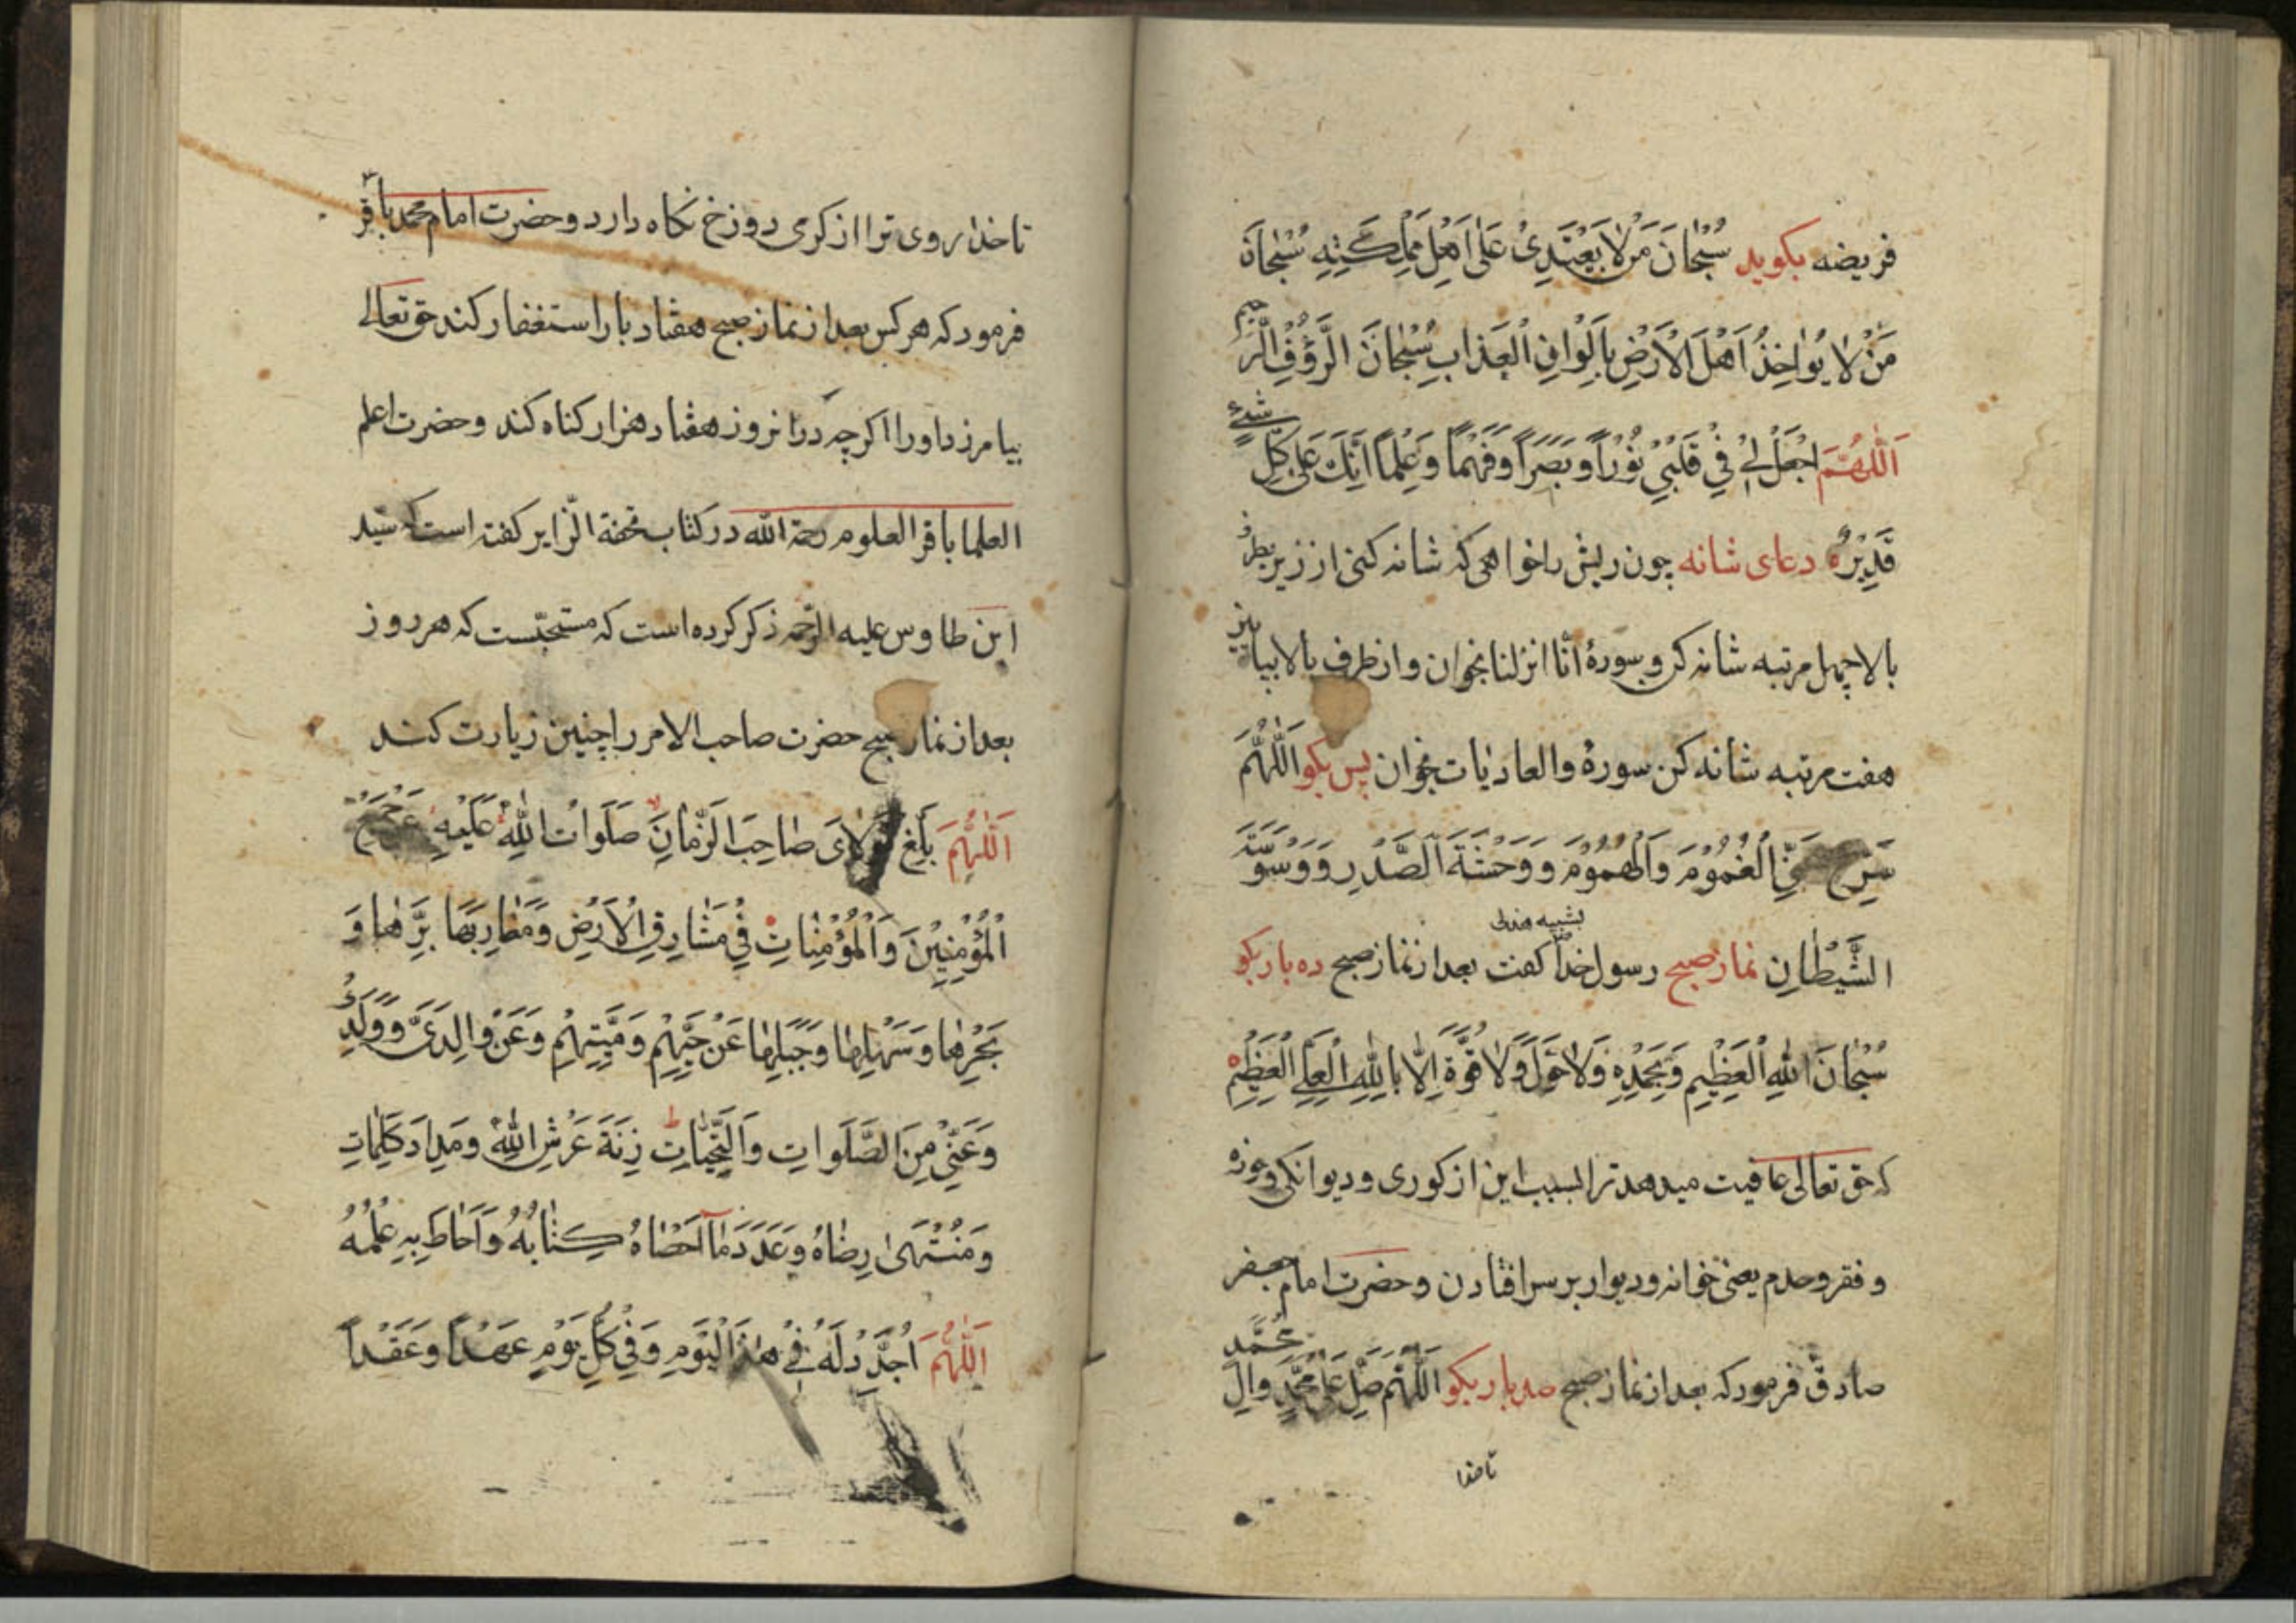 فریضه بکوید سُبْحٰانَ مَنْ لاٰ یَعْتَدِیْ عَلٰی اَهْلِ مَمْلِکَتِهِ سُبْحٰانَ
مَنْ لاٰ یُوٰاخِذُ اَهْلَ الْاَرْضِ بِاَلْوٰانِ الْعَذٰابِ سُبْحٰانَ الرَّؤُفِ الرَّحیم
اَللّٰهُمَّ اجْعَلْ لِیْ فِیْ قَلْبِیْ نُوْراً وَ بَصَراً وَ فَهْماً وَ عِلْماً اِنَّکَ عَلٰی کُلِّ شَیْءٍ
قَدِیْرٌ دعای شانه چون ریش را خواهی که شانه کنی از زیر بطرف
بالا چهل مرتبه شانه کن و سورهٔ انّا انزلنا بخوان و از طرف بالا بپایین
هفت مرتبه شانه کن سورهٔ والعادیٰات بخوان پس بکو اَللّٰهُمَّ
سَرِّحْ عَنِّی الْغُمُوْمَ وَ الْهُمُوْمَ وَ وَحْشَةَ الصَّدْرِ وَ وَسْوَسَةَ
الشَّیْطٰانِ نماز صبح رسول خداؐ کفت بعد از نماز صبح ده بار بکو
سُبْحٰانَ اللّٰهِ الْعَظِیْمِ وَ بِحَمْدِهِ وَ لاٰ حَوْلَ وَ لاٰ قُوَّةَ اِلاّٰ بِاللّٰهِ الْعَلِیِّ الْعَظِیْمِ
که حق تعالی عافیت میدهد ترا بسبب این از کوری و دیوانکی و خوره
و فقر و هدم یعنی خوانه و دیوار بر سر افتادن و حضرت امام جعفر
صادقؑ فرمود که بعد از نماز صبح صد بار بکو اَللّٰهُمَّ صَلِّ عَلٰی مُحَمَّدٍ وَ اٰلِ مُحَمَّدٍ
تا خدا
تا خدا روی ترا از کرمی دوزخ نکاه دارد و حضرت امام محمد باقرؑ
فرمود که هر کس بعد از نماز صبح هفتاد بار استغفار کند حق تعالی
بیامرزد او را اکر چه در انروز هفتاد هزار کناه کند و حضرت اعلم
العلما باقر العلوم رحمة الله در کتاب تحفة الزّایر کفته است که سیّد
ابن طاوس علیه الرّحمه ذکر کرده است که مستحبّست که هر روز
بعد از نماز صبح حضرت صاحب الامر را چنین زیارت کنند
اَللّٰهُمَّ بَلِّغْ مَوْلاٰیَ صٰاحِبَ الزَّمٰانِ صَلَوٰاتُ اللّٰهِ عَلَیْهِ عَنْ جَمِیْعِ
الْمُؤْمِنِیْنَ وَ الْمُؤْمِنٰاتِ فِیْ مَشٰارِقِ الْاَرْضِ وَ مَغٰارِبِهٰا بَرِّهٰا وَ
بَحْرِهٰا وَ سَهْلِهٰا وَ جَبَلِهٰا عَنْ حَیِّهِمْ وَ مَیِّتِهِمْ وَ عَنْ وٰالِدَیَّ وَ وَلَدِیْ
وَ عَنِّیْ مِنَ الصَّلَوٰاتِ وَ التَّحِیّٰاتِ زِنَةَ عَرْشِ اللّٰهِ وَ مِدٰادَ کَلِمٰاتِهِ
وَ مُنْتَهٰی رِضٰاهُ وَ عَدَدَ مٰا اَحْصٰاهُ کِتٰابُهُ وَ اَحٰاطَ بِهِ عِلْمُهُ
اَللّٰهُمَّ اُجَدِّدُ لَهُ فِیْ هٰذَا الْیَوْمِ وَ فِیْ کُلِّ یَوْمٍ عَهْداً وَ عَقْداً